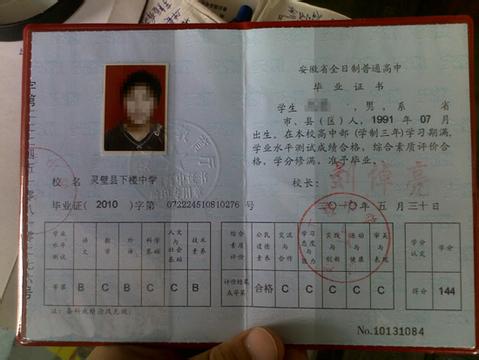 安徽省全日制普通高中
毕业证书
学生 ,男,系 省
市、县(区)人,1991年07月
出生。在本校高中部(学制三年)学习期满,
学业水平测试成绩合格,综合素质评价合
格,学分修满,准予毕业。
校长:
二〇一〇年 五月三十日
校名 灵璧县下楼中学
毕业证(2010)字第 072224510810276 号
学业水平测试 语文 数学 外语 科学基础 人文与社会基础 技术素养
等第 B C B C C B
注:各科成绩涂改无效。
综合素质评价 公民道德素养 交流与合作 学习态度与能力 实践与创新 运动与健康 审美与表现 学分认定 学分
评价结果或等第 合格 C C C C C 得分 144
No.10131084